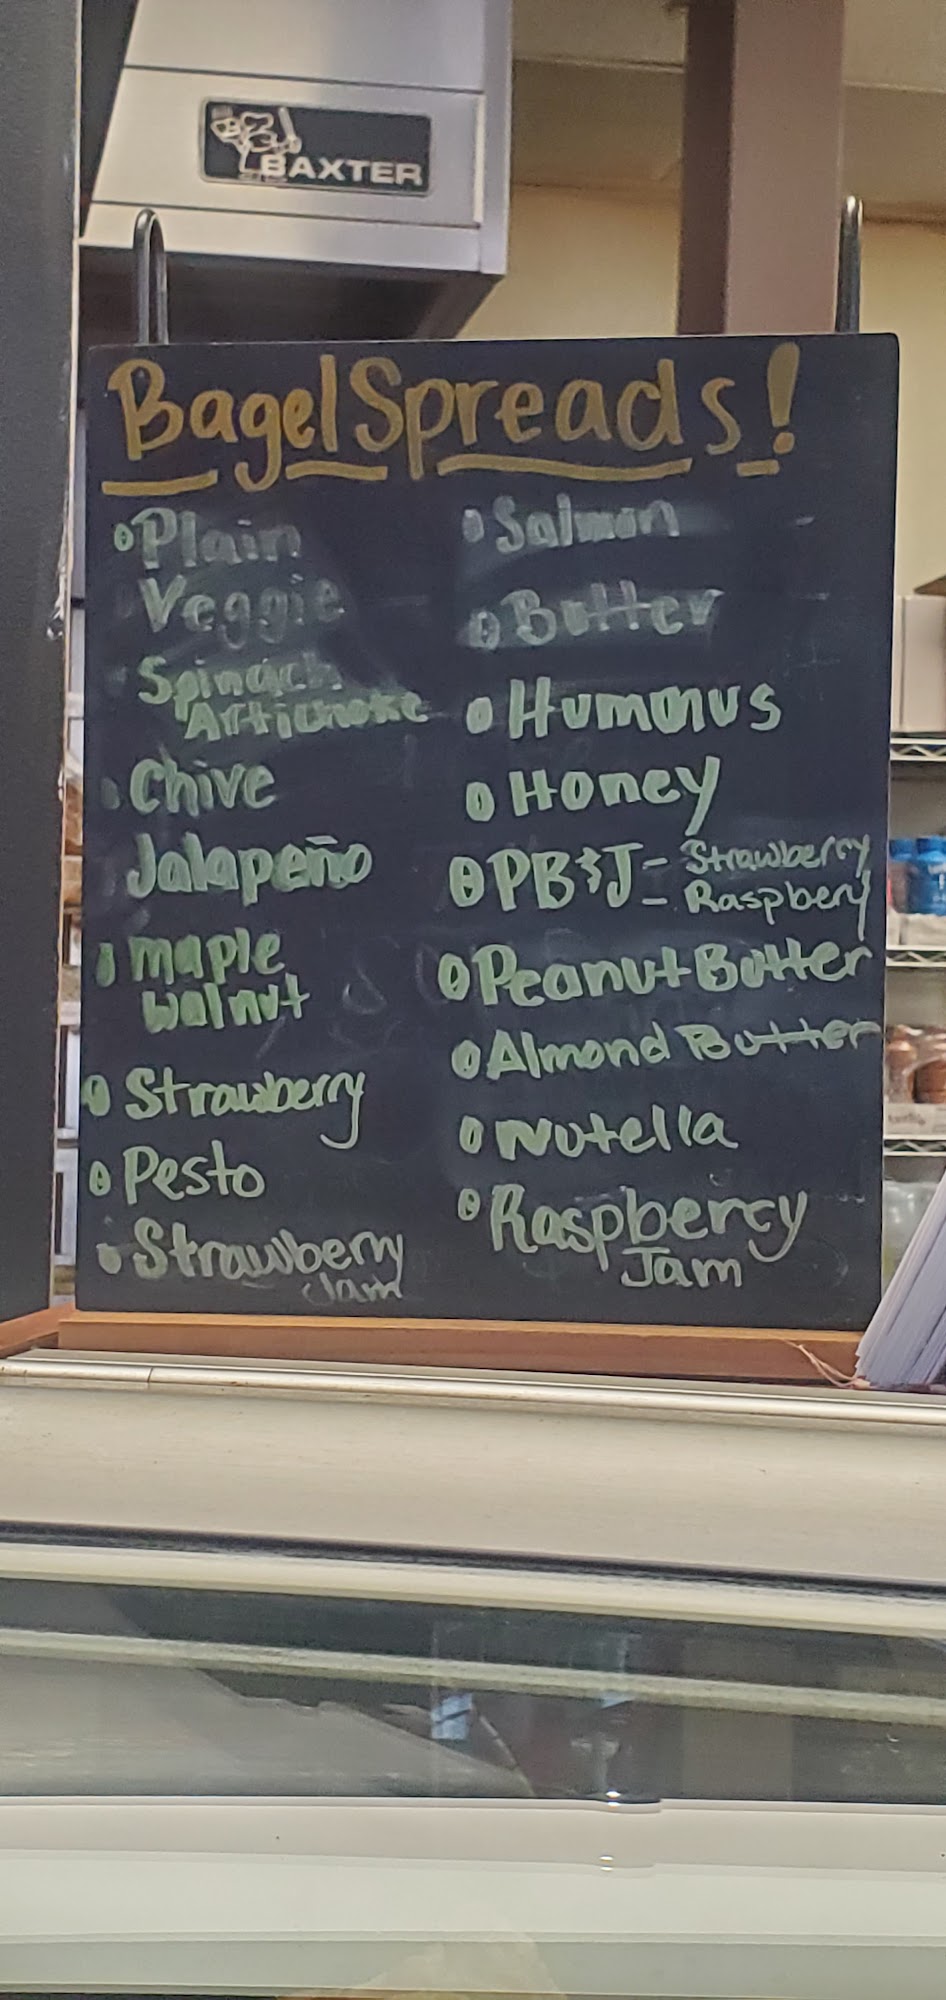 BAXTER
Bagel Spreads!
Plain
Veggie
Spinach
Artichoke
Chive
Jalapeño
maple
walnut
Strawberry
Pesto
Strawberry
Jam
Salmon
Butter
Hummus
Honey
PB&J - Strawberry
- Raspbery
Peanut Butter
Almond Butter
Nutella
Raspberry
Jam